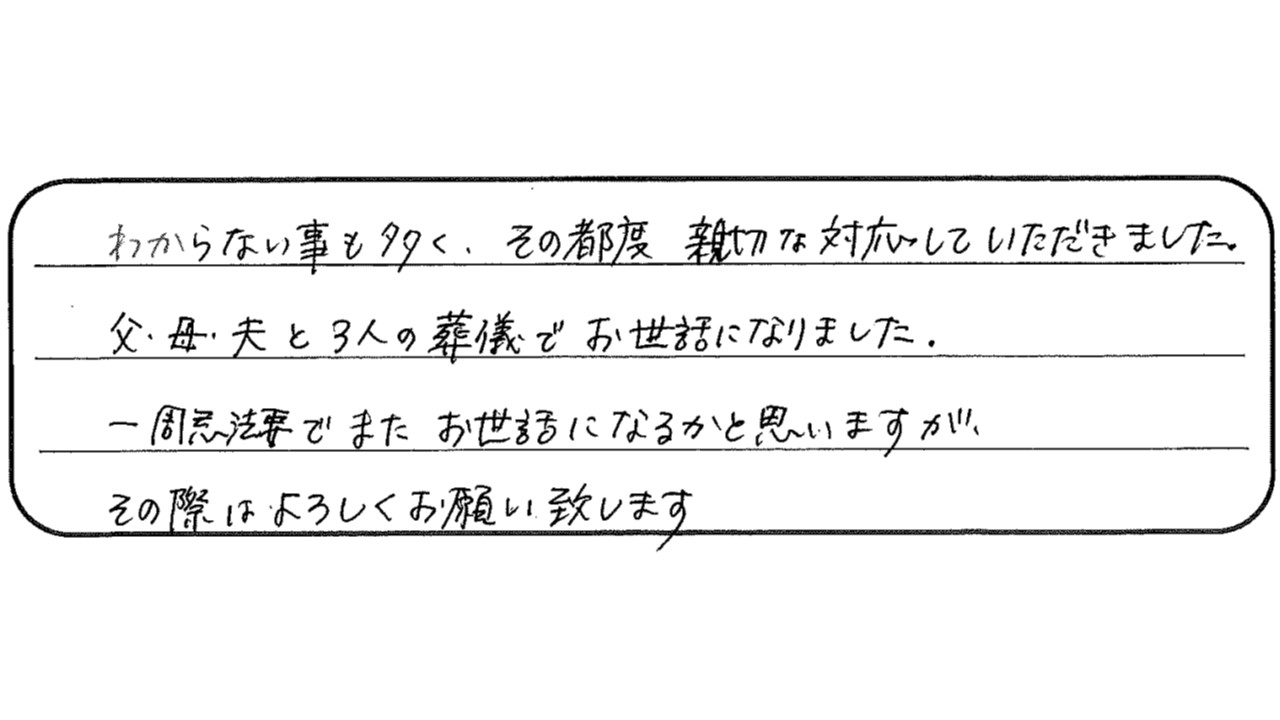 わからない事も多く、その都度 親切な対応していただきました。
父・母・夫と3人の葬儀でお世話になりました。
一周忌法要でまたお世話になるかと思いますが、
その際はよろしくお願い致します